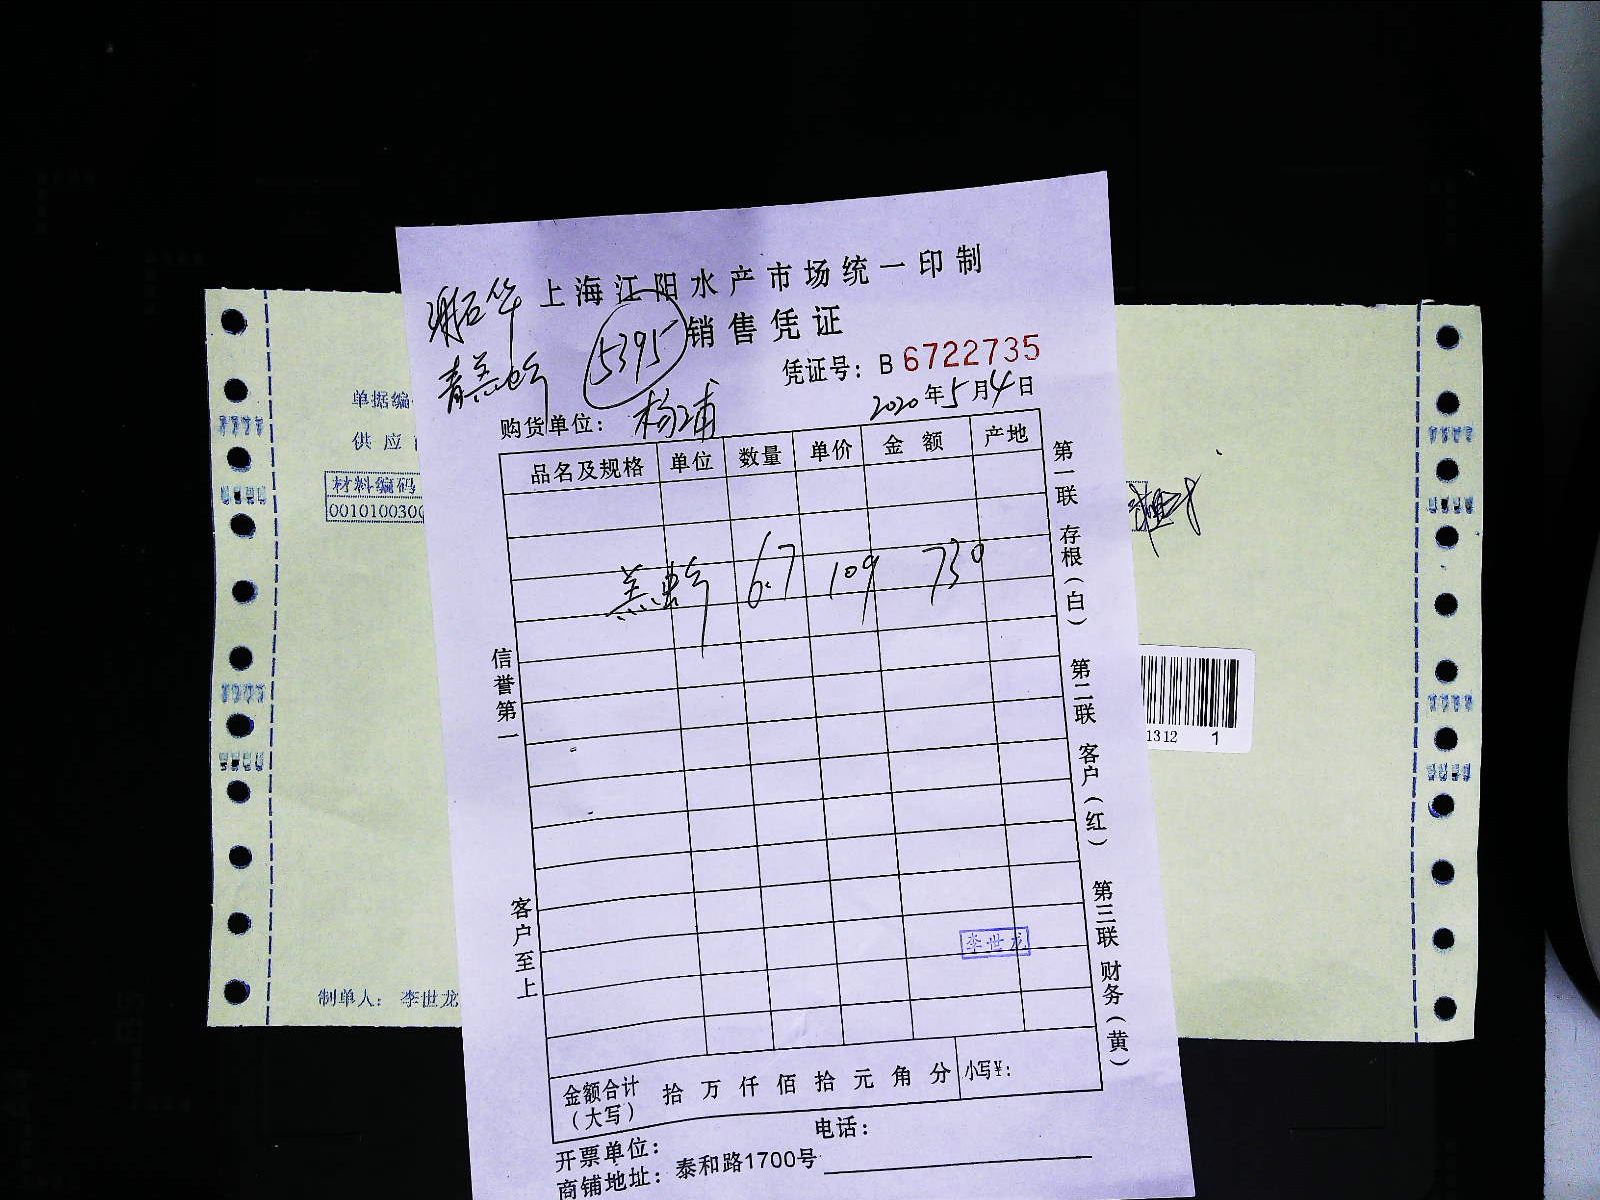 上海江阳水产市场统一印制
销售凭证
5395
凭证号：B 6722735
2020年5月4日
购货单位：杨浦
品名及规格 单位 数量 单价 金额 产地
6.7 109 730
信誉第一
客户至上
第一联 存根（白） 第二联 客户（红） 第三联 财务（黄）
李世龙
金额合计（大写） 拾 万 仟 佰 拾 元 角 分 小写¥：
开票单位： 电话：
商铺地址：泰和路1700号
单据编
供应
材料编码
0010100300
制单人：李世龙
1312 1